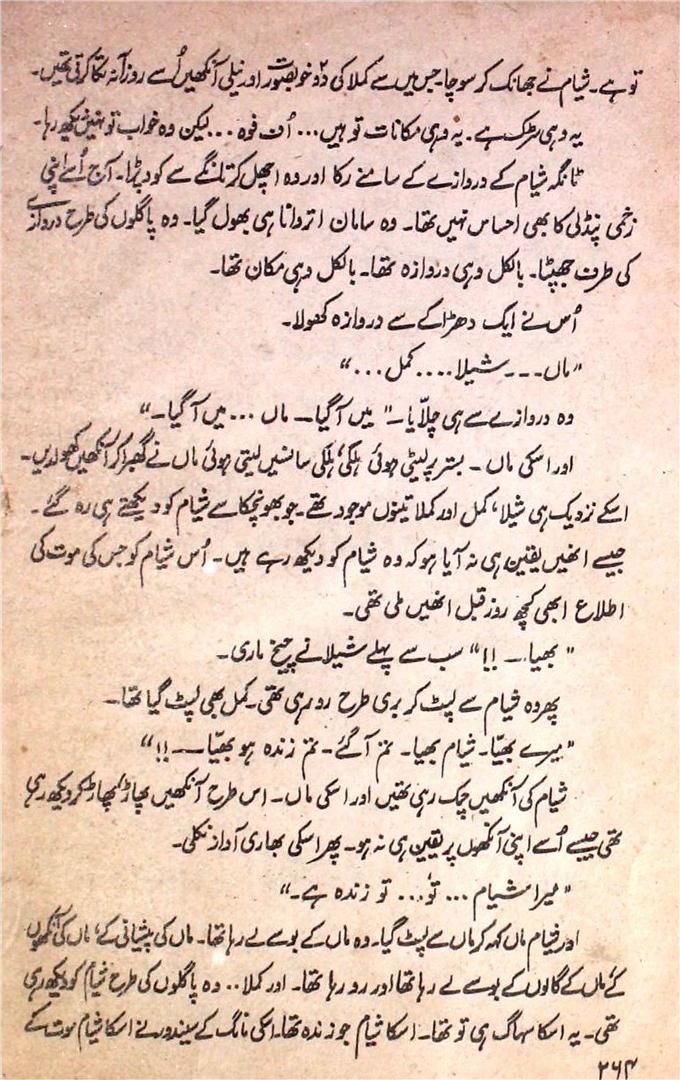 تو ہے۔ شیام نے جھانک کر سوچا۔ جس میں سے کملا کی دو خوبصورت اور نیلی آنکھیں اُسے روزآنہ تکا کرتی تھیں۔
یہ وہی سڑک ہے۔ یہ وہی مکانات تو ہیں... اُف فوہ... لیکن وہ خواب تو نہیں دیکھ رہا۔
ٹانگہ شیام کے دروازے کے سامنے رکا اور وہ اچھل کر تانگے سے کود پڑا۔ آج اُسے اپنی
زخمی پنڈلی کا بھی احساس نہیں تھا۔ وہ سامان اتروانا ہی بھول گیا۔ وہ پاگلوں کی طرح دروازے
کی طرف جھپٹا۔ بالکل وہی دروازہ تھا۔ بالکل وہی مکان تھا۔
اُس نے ایک دھڑاکے سے دروازہ کھولا۔
"ماں--- شیلا.... کمل..."
وہ دروازے سے ہی چلّایا۔ "میں آگیا۔ ماں... میں آگیا۔"
اور اسکی ماں۔ بستر پر لیٹی ہوئی ہلکی، ہلکی سانسیں لیتی ہوئی ماں نے گھبرا کر آنکھیں کھولدیں۔
اسکے نزدیک ہی شیلا، کمل اور کملا تینوں موجود تھے۔ جو بھونچکا سے شیام کو دیکھتے ہی رہ گئے۔
جیسے انھیں یقین ہی نہ آیا ہو کہ وہ شیام کو دیکھ رہے ہیں۔ اُس شیام کو جس کی موت کی
اطلاع ابھی کچھ روز قبل انھیں ملی تھی۔
"بھیا۔ !!" سب سے پہلے شیلا نے چیخ ماری۔
پھر وہ شیام سے لپٹ کر بری طرح رو رہی تھی۔ کمل بھی لپٹ گیا تھا۔
"میرے بھیّا۔ شیام بھیا۔ تم آگئے۔ تم زندہ ہو بھیّا۔ !!"
شیام کی آنکھیں چمک رہی تھیں اور اسکی ماں۔ اس طرح آنکھیں پھاڑ، پھاڑ کر دیکھ رہی
تھی جیسے اُسے اپنی آنکھوں پر یقین ہی نہ ہو۔ پھر اسکی بھاری آواز نکلی۔
"میرا شیام... تو... تو زندہ ہے۔"
اور شیام ماں کہہ کر ماں سے لپٹ گیا۔ وہ ماں کے بوسے لے رہا تھا۔ ماں کی پیشانی کے، ماں کی آنکھوں
کے ماں کے گالوں کے بوسے لے رہا تھا اور رو رہا تھا۔ اور کملا.. وہ پاگلوں کی طرح شیام کو دیکھ رہی
تھی۔ یہ اسکا سہاگ ہی تو تھا۔ اسکا شیام جو زندہ تھا۔ اسکی مانگ کے سیندور نے اسکا شیام موت کے
۲۶۴